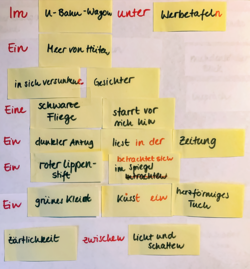 Im U-Bahn-Wagon unter Werbetafeln
Ein Meer von Hüten
in sich versunkene Gesichter
Eine schwarze Fliege starrt vor sich hin
Ein dunkler Anzug liest in der Zeitung
Ein roter Lippen-stift betrachtet sich im Spiegel betrachten
Ein grünes Kleid Küsst ein herzförmiges Tuch
zärtlichkeit zwischen Licht und schatten